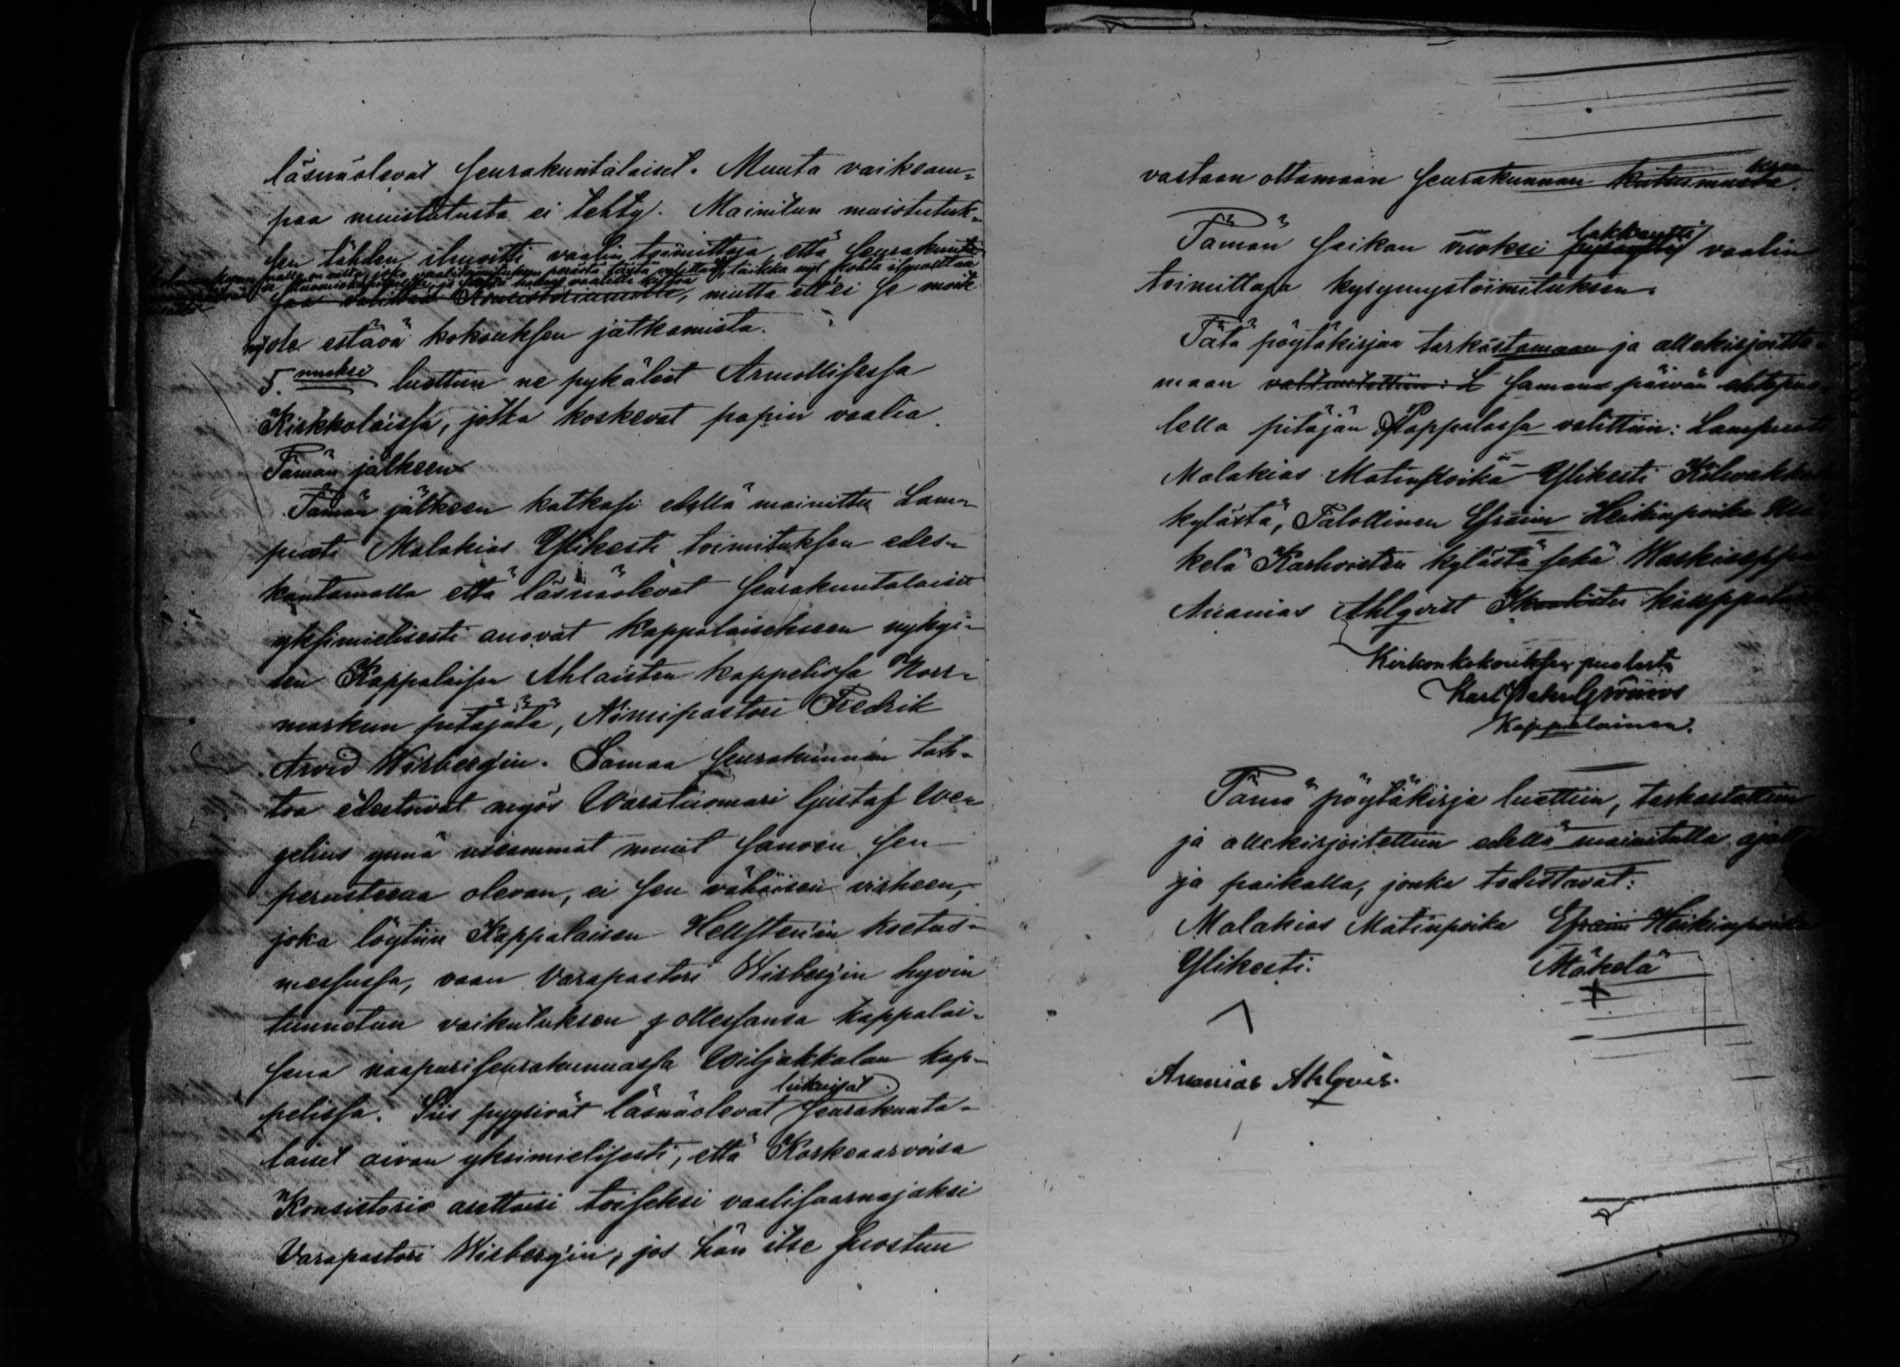 läsnäolevat seurakuntalaiset. Muuta vaikeam-
paa muistutusta ei tehty. Mainitun muistutuk-
sen tähden ilmoitti vaalin toimittaja, että seurakunta
saa valittaa Konsistoriumille, mutta ett'ei se moite
estävä kokouksen jatkamista.
5. nneksi luettiin ne pykälöt Armollisessa
Kirkkolaissa, jotka koskevat papin vaalia.
Tämän jälkeen
Tämän jälkeen katkasi edellä mainittu Lam-
puoti Malakias Ylikesti toimituksen edes-
kantamalla että läsnäolevat seurakuntalaiset
yksimielisesti anovat Kappalaisekseen nykyi-
sen Kappalaisen Ahlaisten kappelissa Norr-
markun pitäjätä, Nimipastori Fredrik
Arvid Wirbergin. Samaa seurakunnan tah-
toa edustivat myös Varatuomari Gustaf We-
gelius ynnä useammat muut sanoen sen
perusteena olevan, ei sen vähäisen virheen,
joka löytiin Kappalaisen Hellsten'in koetus-
messussa, vaan Varapastori Wirbergin hyvin
tunnetun vaikutuksen ollessansa kappalai-
sena naapuriseurakunnassa Wiljakkalan kap-
pelissa. Siis pyysivät läsnäolevat lukuisat seurakunta-
laiset aivan yksimielisesti, että Korkeaarvoisa
Konsistorio asettaisi toiseksi vaalisaarnajaksi
Varapastori Wirbergin, jos hän itse suostuu
vastaan ottamaan seurakunnan kutsumusta.
Tämän seikan vuoksi lakkautti vaalin
toimittaja kysymystoimituksen.
Tätä pöytäkirjaa tarkastamaan ja allekirjoitta-
maan valtuutettiin: L samana päivän
lella pitäjän Pappilassa valittiin: Lampuoti
Malakias Matinpoika Ylikesti
kylästä, Talollinen Efraim Heikinpoika Mä-
kelä Karhoisten kylästä sekä Waskiseppä
Ananias Ahlqvist Ikaalisten kauppala
Kirkonkokouksen puolesta
Karl
Kappalainen.
Tämä pöytäkirja luettiin, tarkastettiin
ja allekirjoitettiin edellä mainitulla ajalla
ja paikalla, jonka todistavat:
Malakias Matinpoika Efraim Heikinpoika
Ylikesti. Mäkelä
Ananias Ahlqvis.